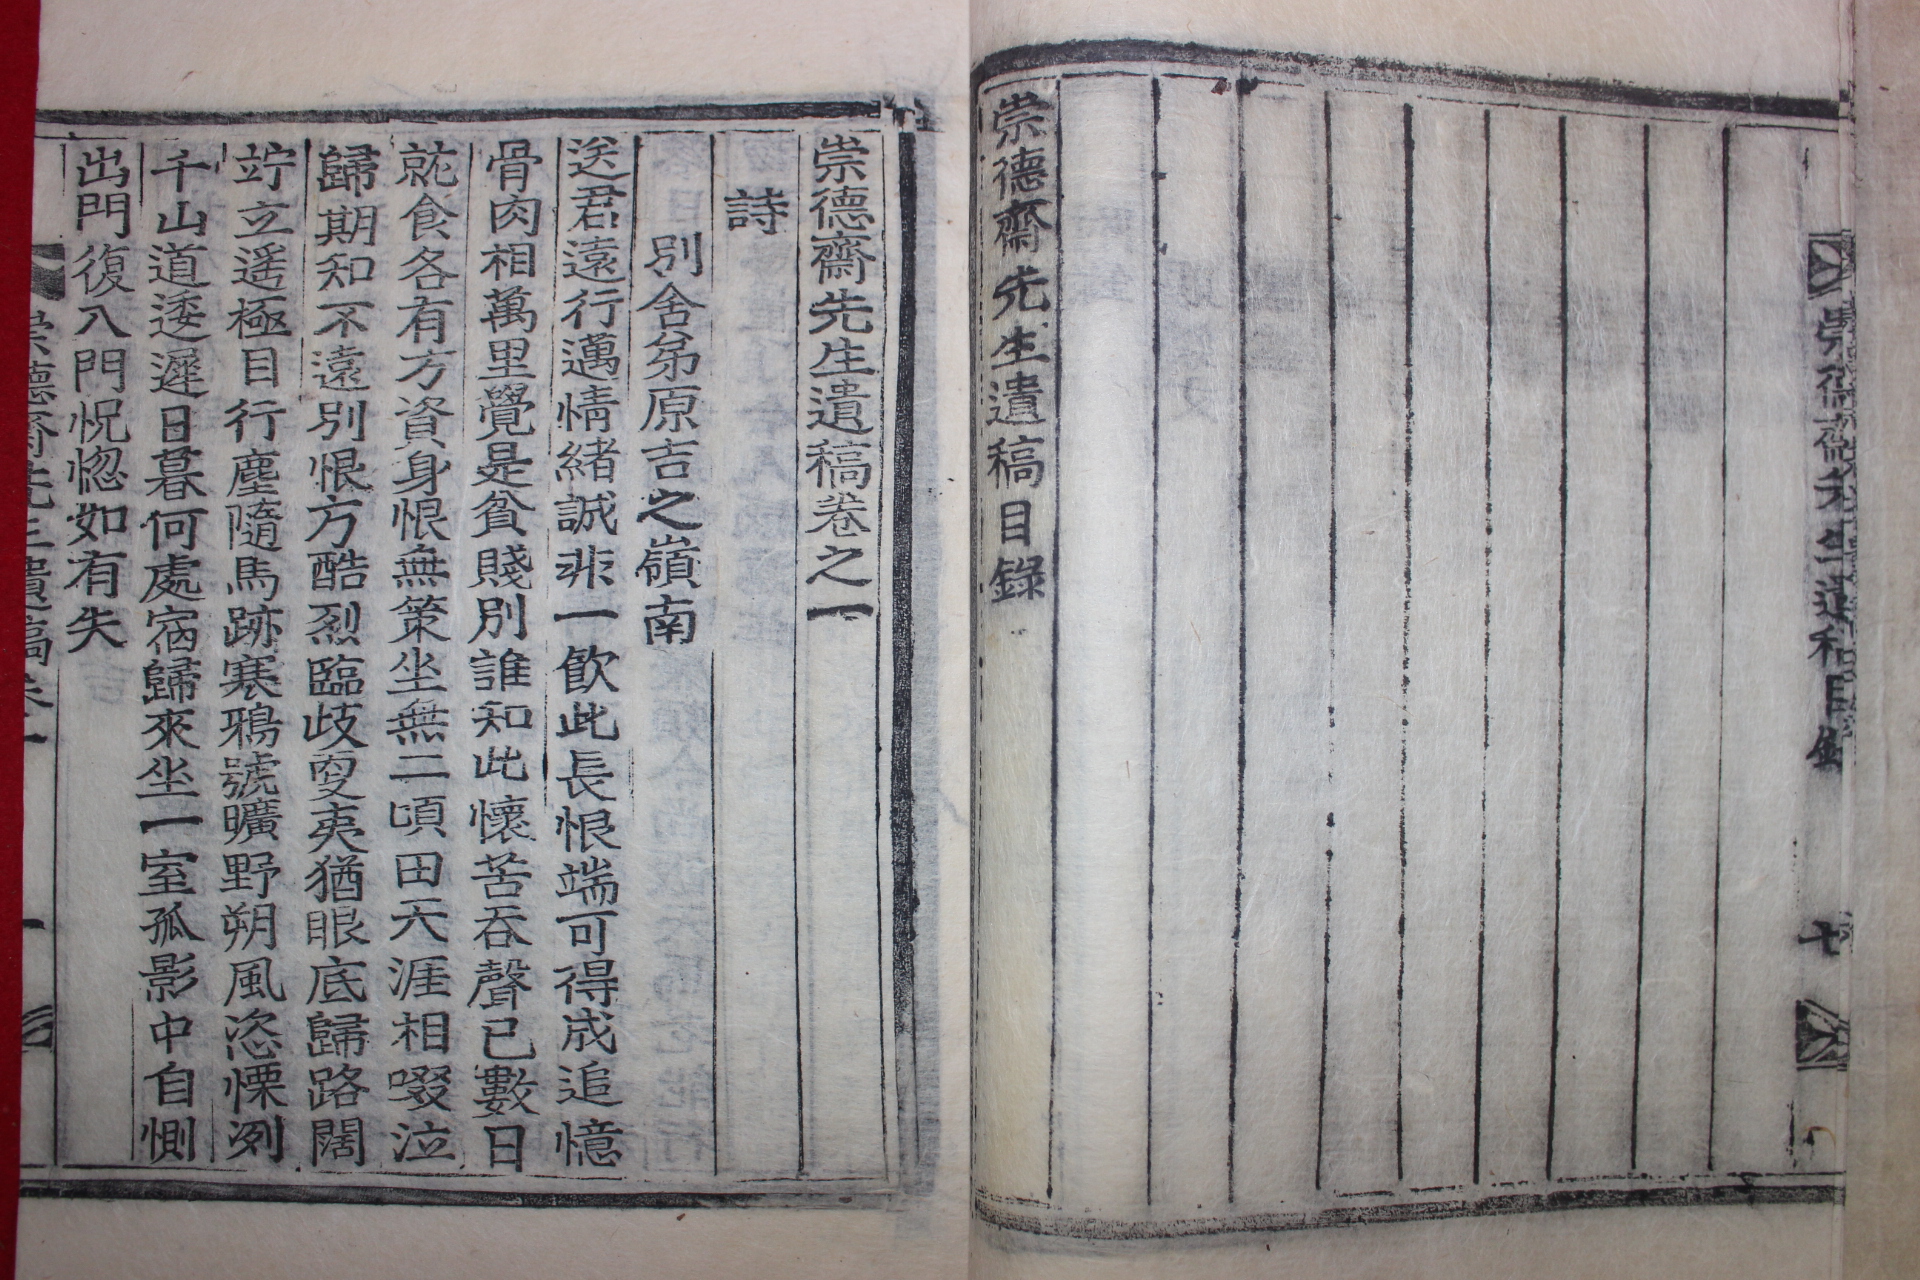 崇德齋先生遺稿目錄
七
崇德齋先生遺稿目錄
崇德齋先生遺稿卷之一
詩
別舍弟原吉之嶺南
送君遠行邁情緒誠非一飮此長恨端可得成追憶
骨肉相萬里覺是貧賤別誰知此懷苦吞聲已數日
就食各有方資身恨無策坐無二頃田天涯相啜泣
歸期知不遠別恨方酷烈臨歧更爽猶眼底歸路闊
竚立遥極目行塵隨馬跡寒鴉號曠野朔風恣慄冽
千山道逶遲日暮何處宿歸來坐一室孤影中自惻
出門復入門怳惚如有失
崇德齋先生遺稿卷一
一